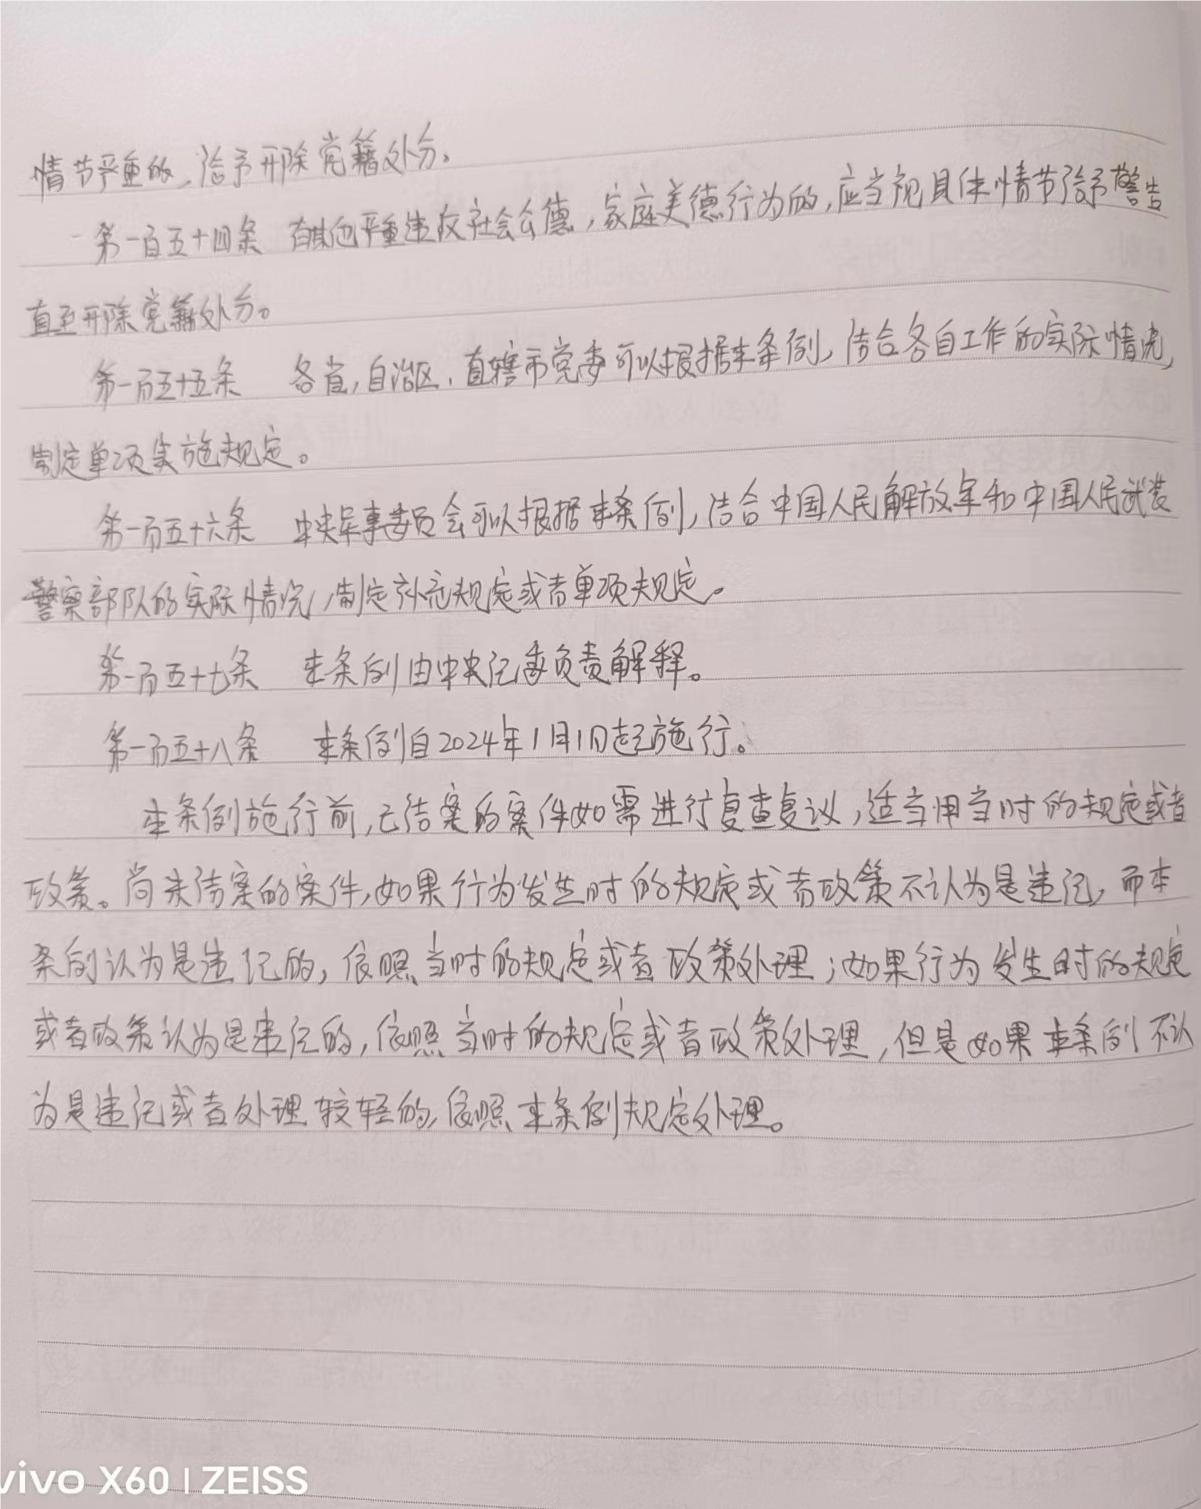 情节严重的，给予开除党籍处分。
第一百五十四条 有其他严重违反社会公德，家庭美德行为的，应当视具体情节给予警告
直至开除党籍处分。
第一百五十五条 各省，自治区，直辖市党委可以根据本条例，结合各自工作的实际情况，
制定单项实施规定。
第一百五十六条 中央军事委员会可以根据本条例，结合中国人民解放军和中国人民武装
警察部队的实际情况，制定补充规定或者单项规定。
第一百五十七条 本条例由中央纪委负责解释。
第一百五十八条 本条例自2024年1月1日起施行。
本条例施行前，已结案的案件如需进行复查复议，适当用当时的规定或者
政策。尚未结案的案件，如果行为发生时的规定或者政策不认为是违纪，而本
条例认为是违纪的，依照当时的规定或者政策处理；如果行为发生时的规定
或者政策认为是违纪的，依照当时的规定或者政策处理，但是如果本条例不认
为是违纪或者处理较轻的，依照本条例规定处理。
vivo X60 | ZEISS